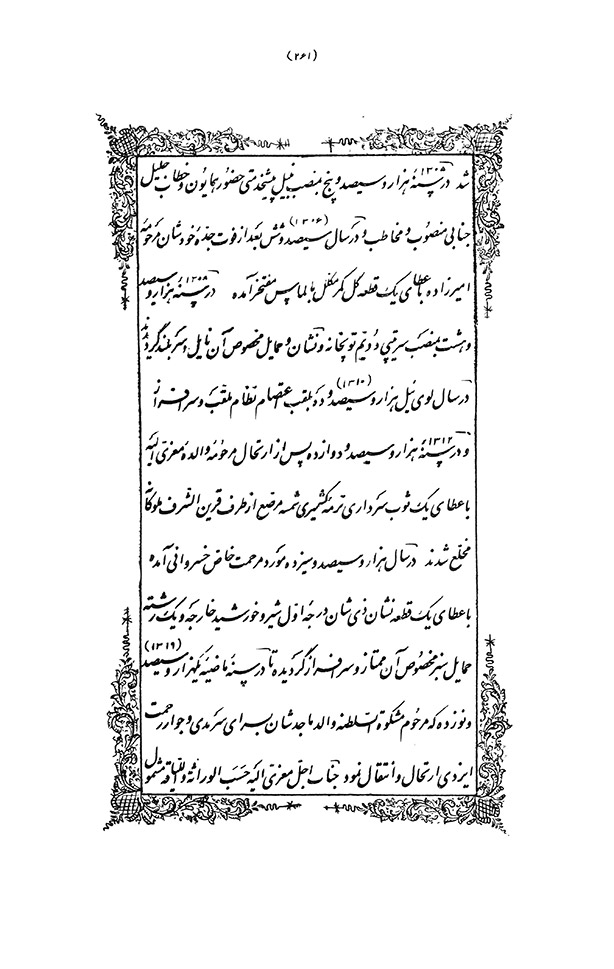 (۲۶۱)
شد در سنهٔ ۱۳۰۵ هزار و سیصد و پنج بمنصب نبیل پیشخدمتی حضور همایون و خطاب جلیل
جنابی منصوب و مخاطب و در سال (۱۳۰۶) سیصد و شش بعد از فوت جدّه خودشان مرحومهٔ
امیرزاده باعطای یک قطعه گل کمر مکلل بالماس مفتخر آمده در سنهٔ ۱۳۰۸ هزار و سیصد
و هشت بمنصب سرتیپی دویّم توپخانه و نشان و حمایل مخصوص آن نایل و سربلند گردیدند
در سال لوی ئیل هزار و سیصد و ده (۱۳۱۰) بلقب اعتصام نظام ملقّب و سرافراز
و در سنهٔ ۱۳۱۲ هزار و سیصد و دوازده پس از ارتحال مرحومه والده معزّی الیه
باعطای یک ثوب سرداری ترمه کشمیری شمسه مرصّع از طرف قرین الشرف ملوکانه
مخلّع شدند در سال هزار و سیصد و سیزده مورد مرحمت خاص خسروانی آمده
باعطای یک قطعه نشان ذی شان درجه اوّل شیر و خورشید خارجه و یک رشته
حمایل سبز مخصوص آن ممتاز و سرافراز گردیده تا در سنهٔ ماضیه یکهزار و سیصد (۱۳۱۹)
و نوزده که مرحوم مشکوة السّلطنه والد ماجدشان بسرای سرمدی و جوار رحمت
ایزدی ارتحال و انتقال نمود جناب اجلّ معزّی الیه حَسَب الوراثة و اللیاقة مشمول